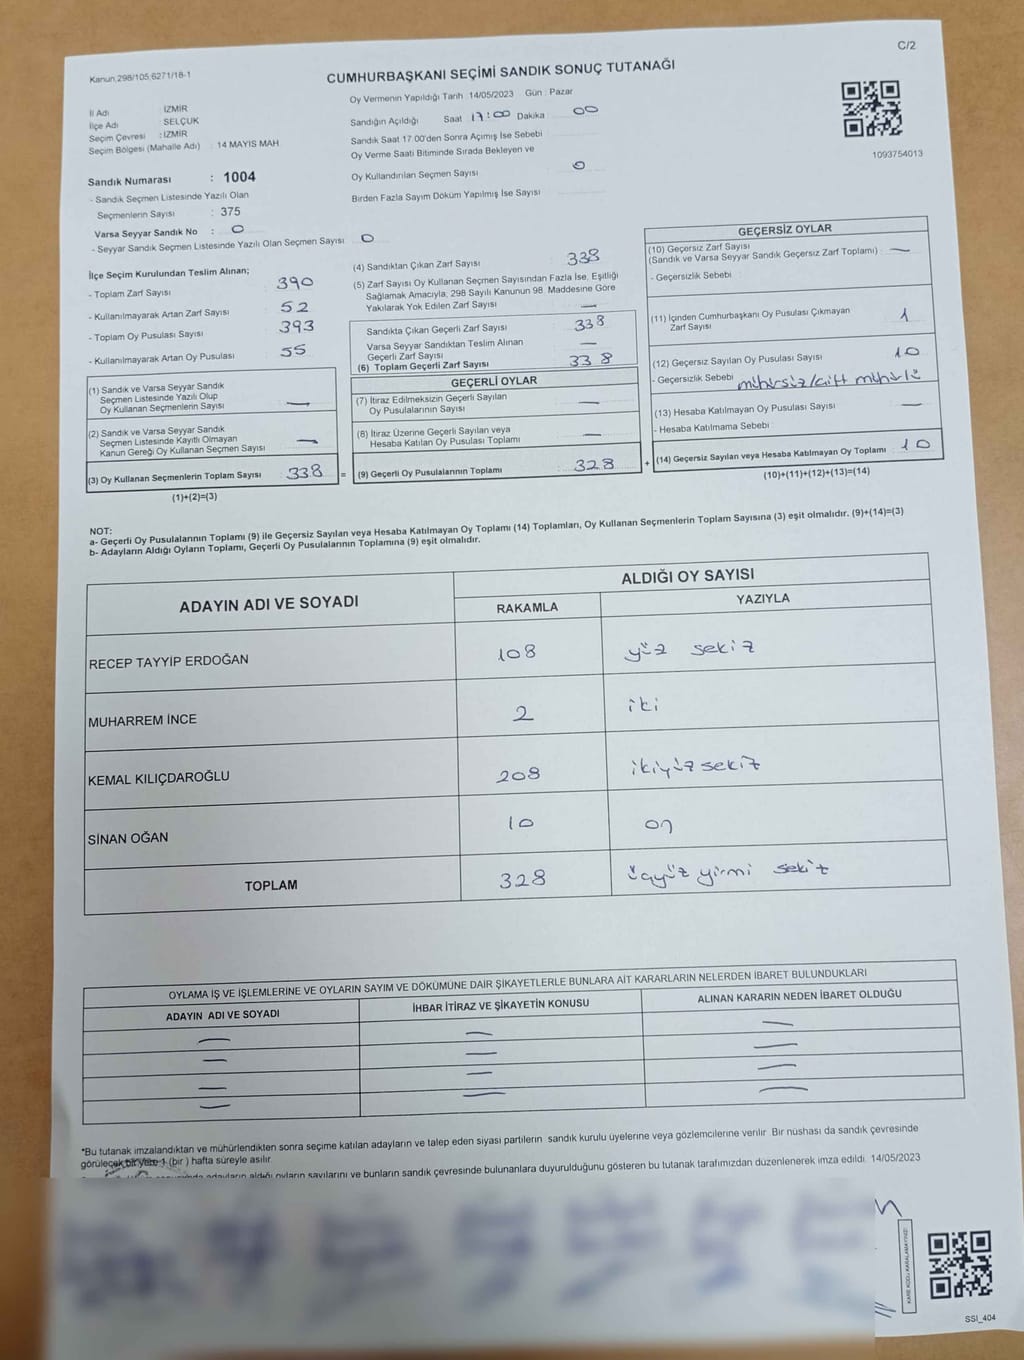 C/2
Kanun,298/105;6271/18-1
CUMHURBAŞKANI SEÇİMİ SANDIK SONUÇ TUTANAĞI
İl Adı : İZMİR
İlçe Adı : SELÇUK
Seçim Çevresi : İZMİR
Seçim Bölgesi (Mahalle Adı) : 14 MAYIS MAH.
Sandık Numarası : 1004
- Sandık Seçmen Listesinde Yazılı Olan
Seçmenlerin Sayısı : 375
Varsa Seyyar Sandık No : 0
- Seyyar Sandık Seçmen Listesinde Yazılı Olan Seçmen Sayısı 0
Oy Vermenin Yapıldığı Tarih 14/05/2023 Gün : Pazar
Sandığın Açıldığı Saat 17:00 Dakika 00
Sandık Saat 17.00'den Sonra Açımış İse Sebebi
Oy Verme Saati Bitiminde Sırada Bekleyen ve
Oy Kullandırılan Seçmen Sayısı 0
Birden Fazla Sayım Döküm Yapılmış İse Sayısı
1093754013
İlçe Seçim Kurulundan Teslim Alınan;
- Toplam Zarf Sayısı 390
- Kullanılmayarak Artan Zarf Sayısı 52
- Toplam Oy Pusulası Sayısı 393
- Kullanılmayarak Artan Oy Pusulası 55
(1) Sandık ve Varsa Seyyar Sandık
Seçmen Listesinde Yazılı Olup
Oy Kullanan Seçmenlerin Sayısı —
(2) Sandık ve Varsa Seyyar Sandık
Seçmen Listesinde Kayıtlı Olmayan
Kanun Gereği Oy Kullanan Seçmen Sayısı —
(3) Oy Kullanan Seçmenlerin Toplam Sayısı 338
(1)+(2)=(3)
(4) Sandıktan Çıkan Zarf Sayısı 338
(5) Zarf Sayısı Oy Kullanan Seçmen Sayısından Fazla İse, Eşitliği
Sağlamak Amacıyla, 298 Sayılı Kanunun 98. Maddesine Göre
Yakılarak Yok Edilen Zarf Sayısı —
Sandıkta Çıkan Geçerli Zarf Sayısı 338
Varsa Seyyar Sandıktan Teslim Alınan
Geçerli Zarf Sayısı —
(6) Toplam Geçerli Zarf Sayısı 338
GEÇERLİ OYLAR
(7) İtiraz Edilmeksizin Geçerli Sayılan
Oy Pusulalarının Sayısı —
(8) İtiraz Üzerine Geçerli Sayılan veya
Hesaba Katılan Oy Pusulası Toplamı —
= (9) Geçerli Oy Pusulalarının Toplamı 328
GEÇERSİZ OYLAR
(10) Geçersiz Zarf Sayısı
(Sandık ve Varsa Seyyar Sandık Geçersiz Zarf Toplamı) —
- Geçersizlik Sebebi
(11) İçinden Cumhurbaşkanı Oy Pusulası Çıkmayan
Zarf Sayısı 1
(12) Geçersiz Sayılan Oy Pusulası Sayısı 10
- Geçersizlik Sebebi mühürsiz/çift mühürlü
(13) Hesaba Katılmayan Oy Pusulası Sayısı —
- Hesaba Katılmama Sebebi
+ (14) Geçersiz Sayılan veya Hesaba Katılmayan Oy Toplamı 10
(10)+(11)+(12)+(13)=(14)
NOT:
a- Geçerli Oy Pusulalarının Toplamı (9) ile Geçersiz Sayılan veya Hesaba Katılmayan Oy Toplamı (14) Toplamları, Oy Kullanan Seçmenlerin Toplam Sayısına (3) eşit olmalıdır. (9)+(14)=(3)
b- Adayların Aldığı Oyların Toplamı, Geçerli Oy Pusulalarının Toplamına (9) eşit olmalıdır.
ADAYIN ADI VE SOYADI ALDIĞI OY SAYISI
RAKAMLA YAZIYLA
RECEP TAYYİP ERDOĞAN 108 yüz sekiz
MUHARREM İNCE 2 iki
KEMAL KILIÇDAROĞLU 208 ikiyüz sekiz
SİNAN OĞAN 10 on
TOPLAM 328 üçyüz yirmi sekiz
OYLAMA İŞ VE İŞLEMLERİNE VE OYLARIN SAYIM VE DÖKÜMÜNE DAİR ŞİKAYETLERLE BUNLARA AİT KARARLARIN NELERDEN İBARET BULUNDUKLARI
ADAYIN ADI VE SOYADI İHBAR İTİRAZ VE ŞİKAYETİN KONUSU ALINAN KARARIN NEDEN İBARET OLDUĞU
— — —
— — —
— — —
— — —
*Bu tutanak imzalandıktan ve mühürlendikten sonra seçime katılan adayların ve talep eden siyasi partilerin sandık kurulu üyelerine veya gözlemcilerine verilir. Bir nüshası da sandık çevresinde
görülecek bir yere 1 (bir ) hafta süreyle asılır.
adayların aldığı oyların sayılarını ve bunların sandık çevresinde bulunanlara duyurulduğunu gösteren bu tutanak tarafımızdan düzenlenerek imza edildi. 14/05/2023
KARE KODU KARALAMAYINIZ!
SSI_404